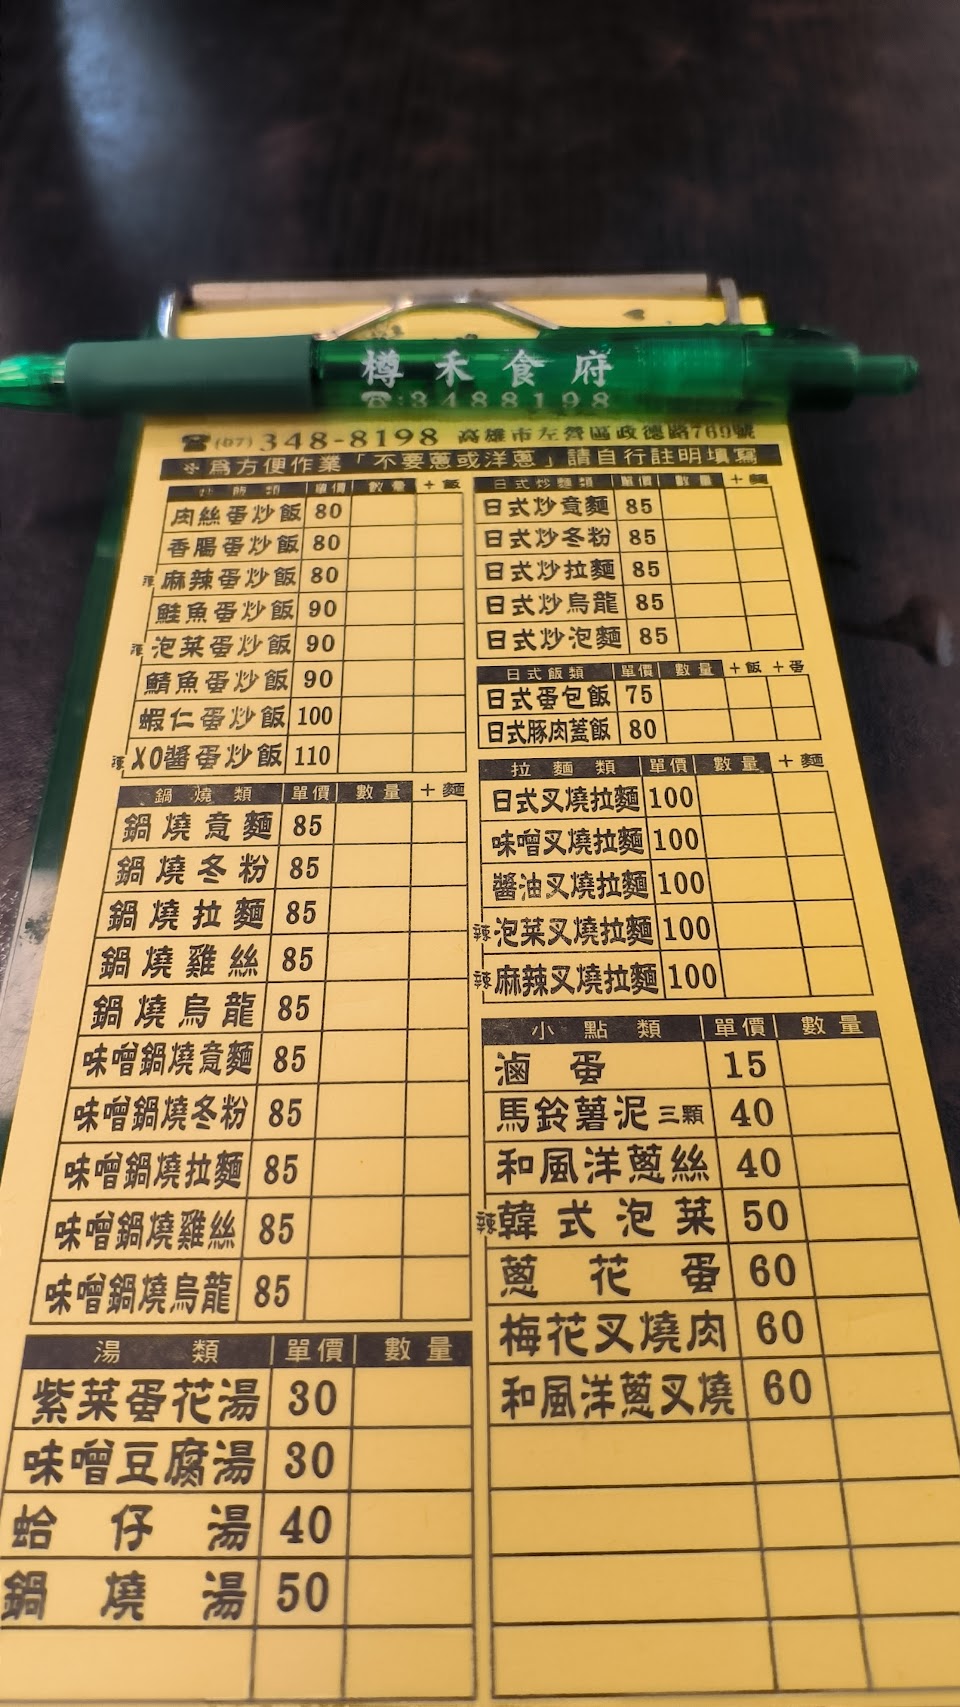 樽禾食府
☎:3488198
☎(07)348-8198 高雄市左營區政德路769號
※為方便作業「不要蔥或洋蔥」請自行註明填寫
炒飯類 單價 數量 +飯
肉絲蛋炒飯 80
香腸蛋炒飯 80
辣 麻辣蛋炒飯 80
鮭魚蛋炒飯 90
辣 泡菜蛋炒飯 90
鯖魚蛋炒飯 90
蝦仁蛋炒飯 100
辣 XO醬蛋炒飯 110
鍋燒類 單價 數量 +麵
鍋燒意麵 85
鍋燒冬粉 85
鍋燒拉麵 85
鍋燒雞絲 85
鍋燒烏龍 85
味噌鍋燒意麵 85
味噌鍋燒冬粉 85
味噌鍋燒拉麵 85
味噌鍋燒雞絲 85
味噌鍋燒烏龍 85
湯類 單價 數量
紫菜蛋花湯 30
味噌豆腐湯 30
蛤仔湯 40
鍋燒湯 50
日式炒麵類 單價 數量 +麵
日式炒意麵 85
日式炒冬粉 85
日式炒拉麵 85
日式炒烏龍 85
日式炒泡麵 85
日式飯類 單價 數量 +飯 +蛋
日式蛋包飯 75
日式豚肉蓋飯 80
拉麵類 單價 數量 +麵
日式叉燒拉麵 100
味噌叉燒拉麵 100
醬油叉燒拉麵 100
辣 泡菜叉燒拉麵 100
辣 麻辣叉燒拉麵 100
小點類 單價 數量
滷蛋 15
馬鈴薯泥三顆 40
和風洋蔥絲 40
辣 韓式泡菜 50
蔥花蛋 60
梅花叉燒肉 60
和風洋蔥叉燒 60